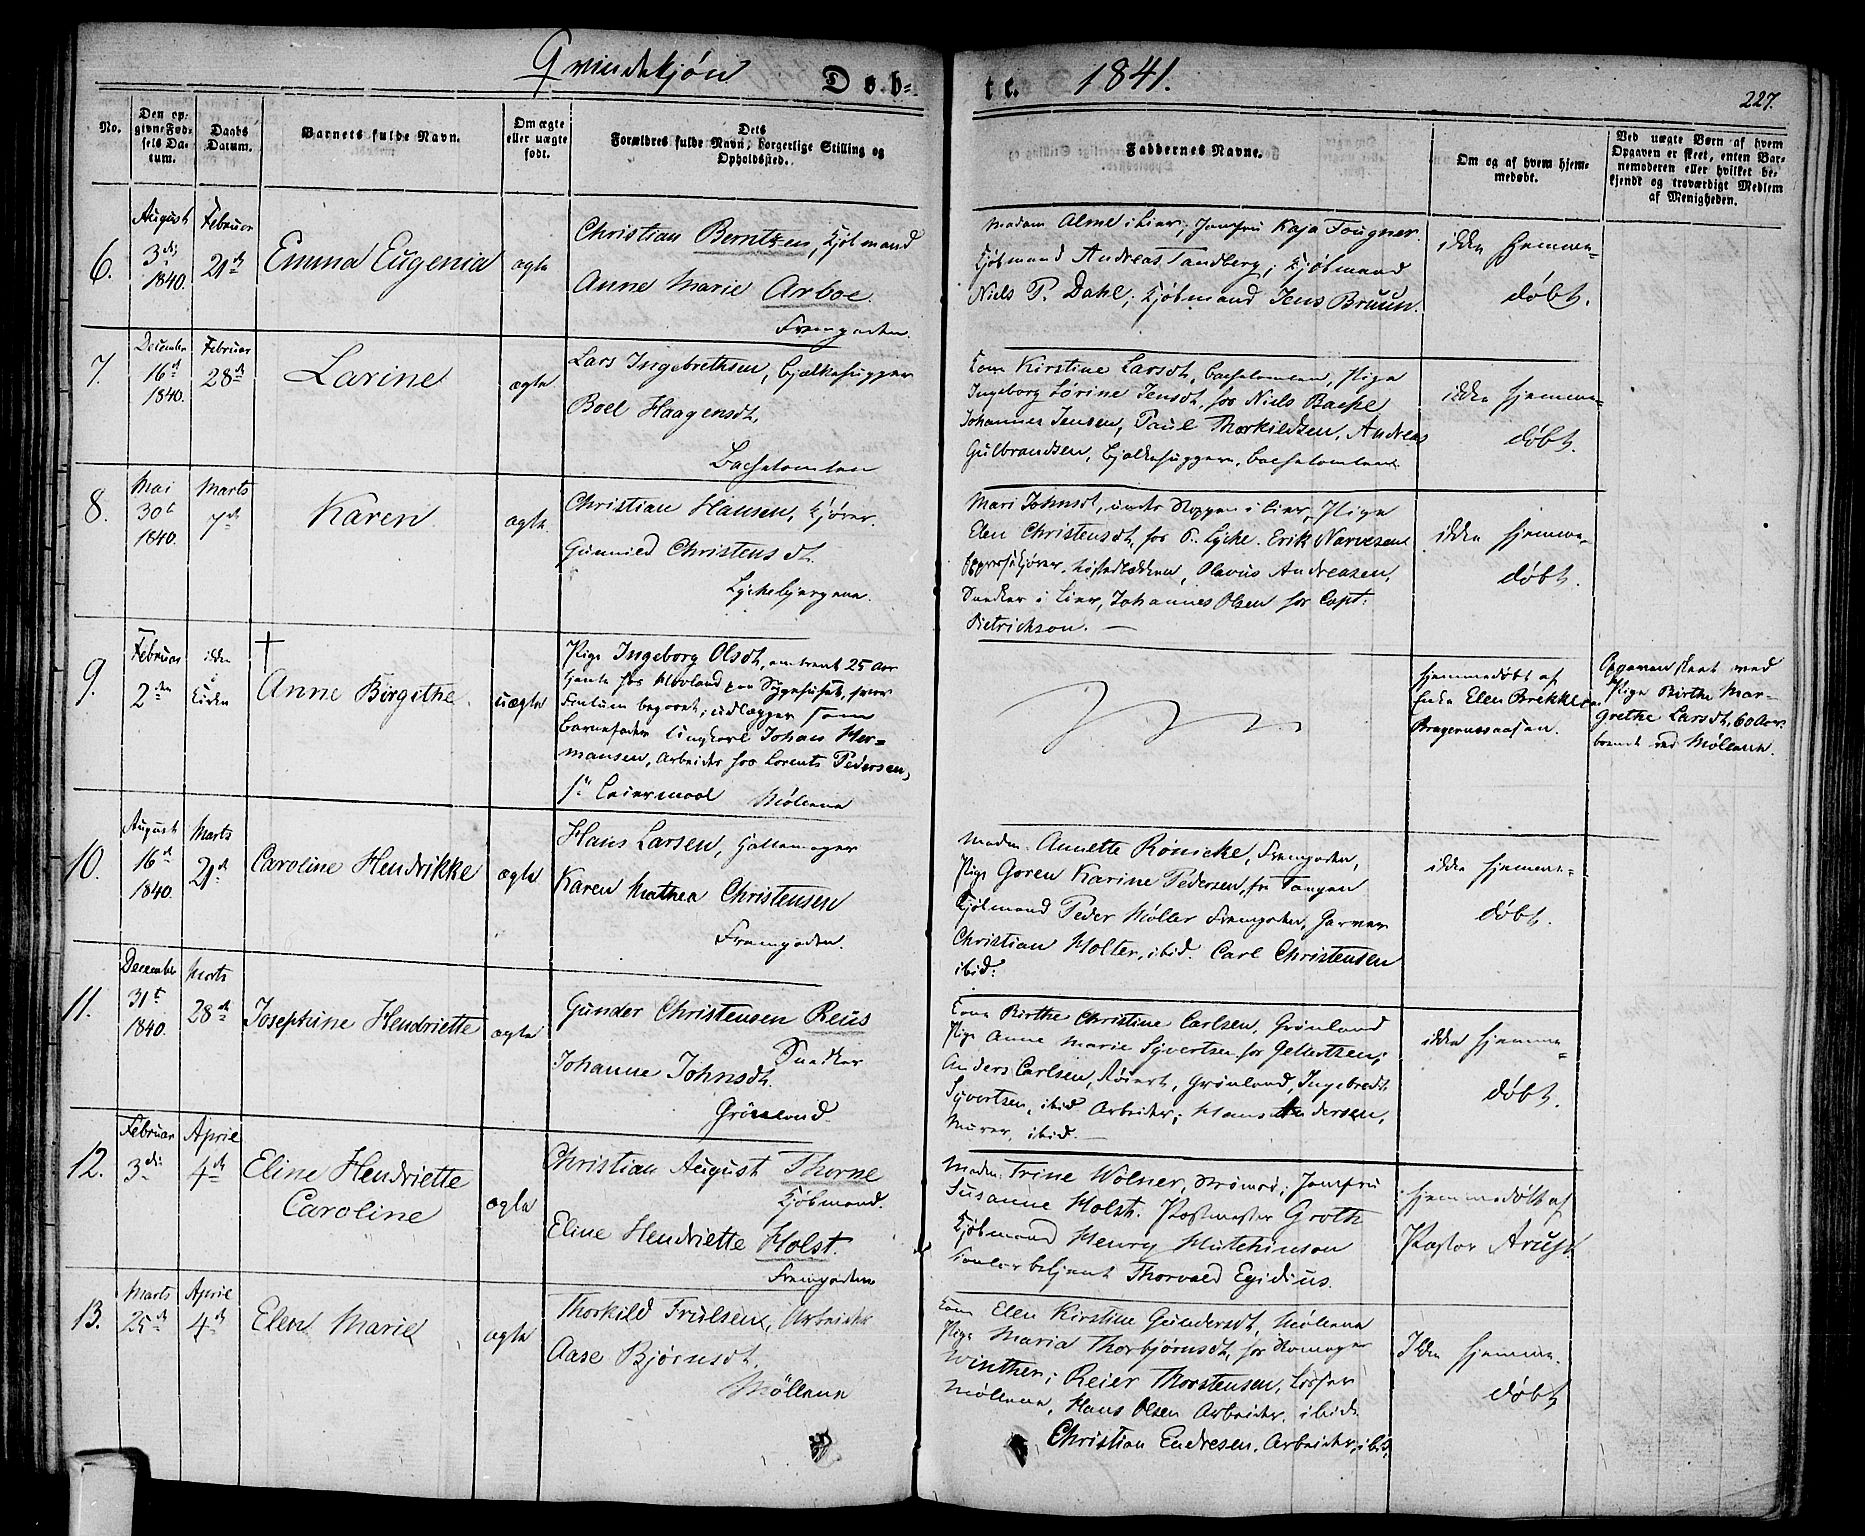 Qvindekjøn Døb-
te. 1841.
227.
No.
Den op-
givne Fød-
sels Da-
tum.
Daabs
Datum.
Barnets fulde Navn.
Om ægte
eller uægte
født.
Dets
Forældres fulde Navn, borgerlige Stilling og
Opholdssted.
Faddernes Navne.
Om og af hvem hjem-
medøbt.
Ved uægte Børn af hvem
Opgaven er skeet, enten Bar-
nemoderen eller hvilket be-
kjendt og troværdigt Medlem
af Menigheden.
6.
August
3die
1840.
Februar
21de
Emma Eugenia
ægte
Christian Berntzen, Kjøbmand
Anne Marie Arboe.
Fremgaden.
Madam Alme i Lier; Jomfru Kaja Tougner.
Kjøbmand Andreas Tandberg; Kjøbmand
Niels P. Dahl; Kjøbmand Jens Bruun.
ikke hjemme-
døbt.
7.
December
16de
1840.
Februar
28de
Larine
ægte
Lars Ingebrethsen, Bjelkehugger
Boel Haagensdt,
Kone Kirstine Larsdt, Pige
Ingeborg Lørine Jensdt, hos Niels
Johannes Jensen, Paul Thorkildsen, Andreas
Gulbrandsen, Bjelkehuggere,
ikke hjemme-
døbt.
8.
Mai
30te
1840.
Marts
7de
Karen
ægte
Christian Hansen, Kjører.
Gunnild Christensdt.
Mari Johnsdt, i Lier, Pige
Elen Christensdt, hos P. Lycke. Erik Narvesen
Olavus Andreasen,
Snedker i Lier, Johannes Olsen hos Capt:
Dietrichson. —
ikke hjemme-
døbt.
9.
Februar
2den
ikke
i
Kirken
†
Anne Birgithe.
uægte
Pige Ingeborg Olsdt, omtrent 25 Aar
paa Sygehuset, hvor
som
Barnefader Ungkarl Johan Her-
mansen, Arbeider hos Lorents Pedersen,
1ste Leiermaal Møllene
hjemmedøbt af
Enke Elen Brekke paa
Bragernesaasen.
Opgaven skeet ved
Pige Birthe Mar-
grethe Larsdt, 60 Aar
boende ved Møllene.
10.
August
16de
1840.
Marts
21de
Caroline Hendrikke
ægte
Hans Larsen, Hattemager
Karen Mathea Christensen
Fremgaden.
Madm. Annette Rönicke, Fremgaden,
Pige Goren Karine Pedersen, fr Tangen
Kjøbmand Peder Møller Fremgaden, Garver
Christian Holter, ibid. Carl Christensen
ibid:
ikke hjemme-
døbt.
11.
December
31te
1840.
Marts
28de
Josephine Hendriette
ægte
Gunder Christensen Reüs
Snedker
Johanne Johnsdt.
Grønland.
Kone Birthe Christine Carlsen, Grønland
Pige Anne Marie Syvertsen hos Gellertsen;
Anders Carlsen, Grønland, Ingebredt
Syvertsen, ibid Arbeider; Hans Andersen,
Murer, ibid. —
ikke hjemme-
døbt.
12.
Februar
3die
Aprile
4de
Eline Hendriette
Caroline
ægte
Christian August Thorne
Kjøbmand.
Eline Hendriette Holst.
Fremgaden
Madm: Trine Wölner, Strømsø; Jomfru
Susanne Holst. Postmester Groth
Kjøbmand Henry Hutchinson
Contorbetjent Thorvald Egidius.
hjemmedøbt af
Pastor Arup
13.
Marts
25de
Aprile
4de
Elen Marie
ægte
Thorkild Frulsen, Arbeider
Aase Bjørnsdt.
Møllene
Kone Elen Kirstine Gundersdt, Møllene
Pige Maria Thorbjørnsdt, hos Skomager
Winther; Reier Thorstensen, Losser
Møllene, Hans Olsen Arbeider, ibid.
Christian Endresen, Arbeider, ibid.
Ikke hjemme-
døbt